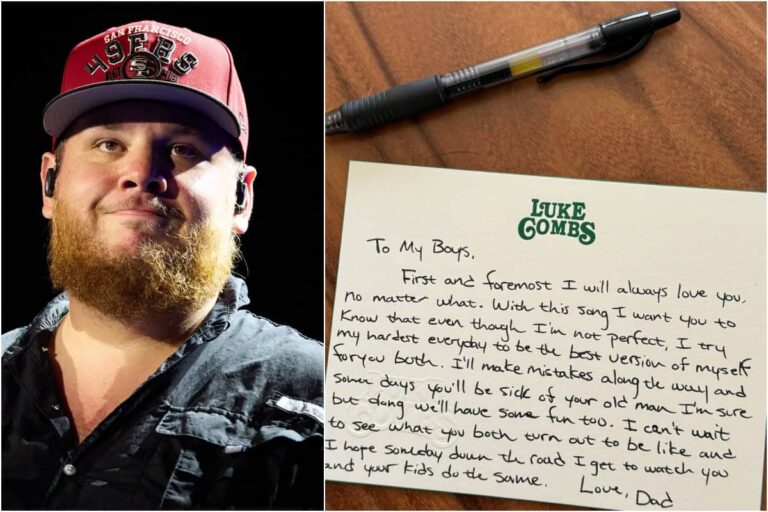 SAN FRANCISCO
49ERS
SF
LUKE
COMBS
To My Boys,
First and foremost I will always love you,
no matter what. With this song I want you to
Know that even though I'm not perfect, I try
my hardest everyday to be the best version of myself
for you both. I'll make mistakes along the way and
some days you'll be sick of your old man I'm sure
but dang we'll have some fun too. I can't wait
to see what you both turn out to be like and
I hope someday down the road I get to watch you
and your kids do the same. Love, Dad